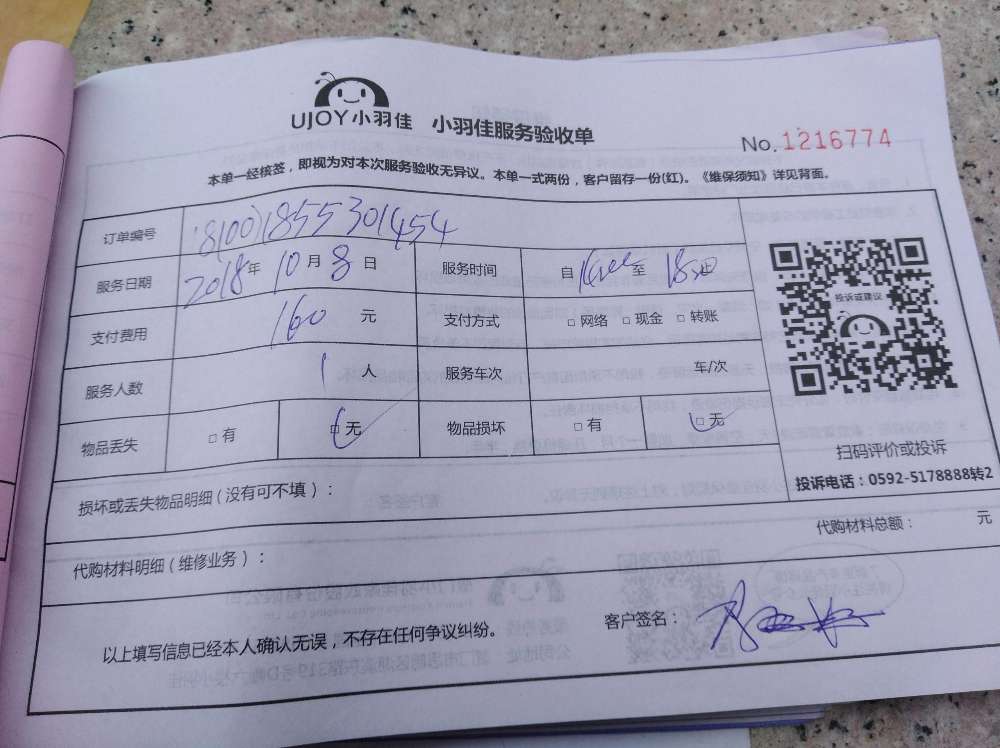 UJOY小羽佳 小羽佳服务验收单
No.1216774
本单一经核签，即视为对本次服务验收无异议。本单一式两份，客户留存一份(红)。《维保须知》详见背面。
订单编号 8100)1855301454
服务日期 2018年 10月 8日 服务时间 自 至 止
支付费用 160 元 支付方式 □网络 □现金 □转账
服务人数 1 人 服务车次 车/次
物品丢失 □有 □无 物品损坏 □有 □无
投诉或建议
扫码评价或投诉
投诉电话：0592-5178888转2
损坏或丢失物品明细(没有可不填)：
代购材料总额： 元
代购材料明细(维修业务)：
客户签名：
以上填写信息已经本人确认无误，不存在任何争议纠纷。